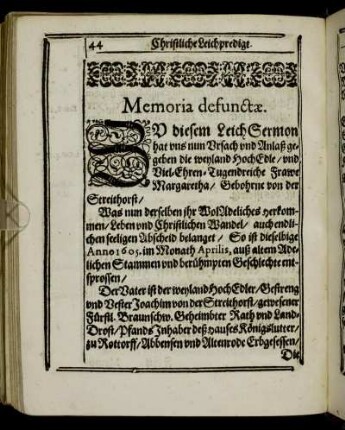 44 Christliche Leichpredigt.
Memoria defunctæ.
ZU diesem Leich Sermon
hat vns nun Vrsach vnd Anlaß ge-
geben die weyland HochEdle / vnd
Viel-Ehren-Tugendreiche Frawe
Margaretha / Gebohrne von der
Streithorst /
Was nun derselben jhr WolAdeliches herkom-
men / Leben vnd Christlichen Wandel / auch endli-
chen seeligen Abscheid belanget / So ist dieselbige
Anno 1605. im Monath Aprilis, auß altem Ade-
lichen Stammen vnd berühmpten Geschlechte ent-
sprossen /
Der Vater ist der weyland HochEdler / Gestreng
vnd Vester Joachim von der Streithorst / gewesener
Fürstl. Braunschw. Geheimbter Rath vnd Land-
Drost / Pfands Inhaber deß hauses Königslutter /
zu Rottorff / Abbensen vnd Altenrode Erbgesessen /
Die